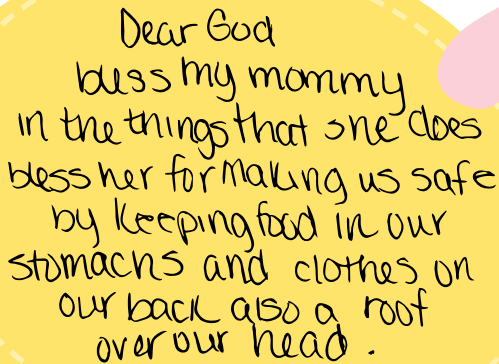 Dear God
bless my mommy
in the things that she does
bless her for making us safe
by keeping food in our
stomachs and clothes on
our back also a roof
over our head.